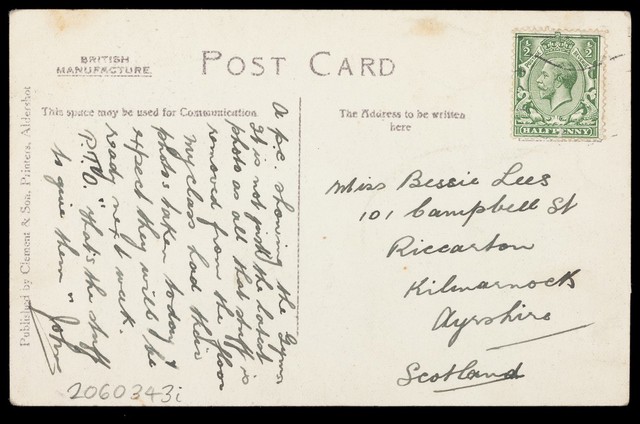 BRITISH
MANUFACTURE.
POST CARD
This space may be used for Communication
The Address to be written
here
½ ½
HALFPENNY
A p.c. showing the Gym.
It is not just the latest
photo as all that stuff is
removed from the floor
My class had their
photo taken today &
expect they will be
ready next week.
P.T.O. "That's the stuff
to give them" John
Miss Bessie Lees
101 Campbell St
Riccarton
Kilmarnock
Ayrshire
Scotland
Published by Clement & Son, Printers, Aldershot
2060343i